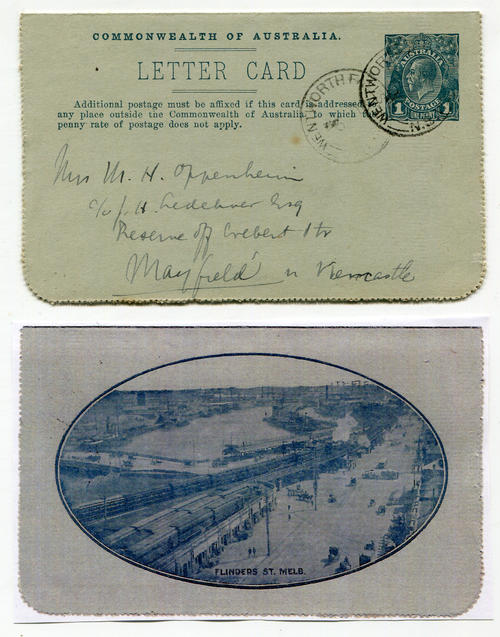 COMMONWEALTH OF AUSTRALIA.
LETTER CARD
Additional postage must be affixed if this card is addressed
any place outside the Commonwealth of Australia to which
penny rate of postage does not apply.
AUSTRALIA
1 POSTAGE 1
WENTWORTH
WENTWORTH
Mrs M. H. Oppenheim
c/o J. H. Esq
Reserve off Str
Mayfield n Newcastle
FLINDERS ST. MELB.